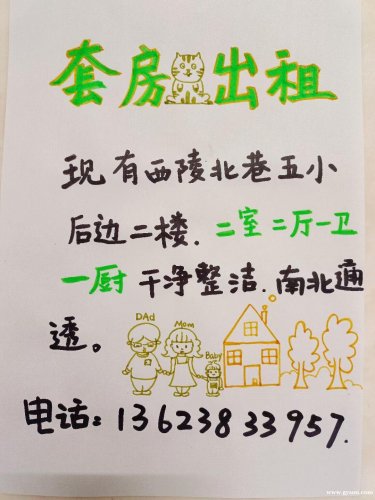 套房出租
现有西陵北巷五小
后边二楼.二室二厅一卫
一厨干净整洁.南北通
透。
DAd
Mom
Baby
电话:13623833957.
www.gyunu.com